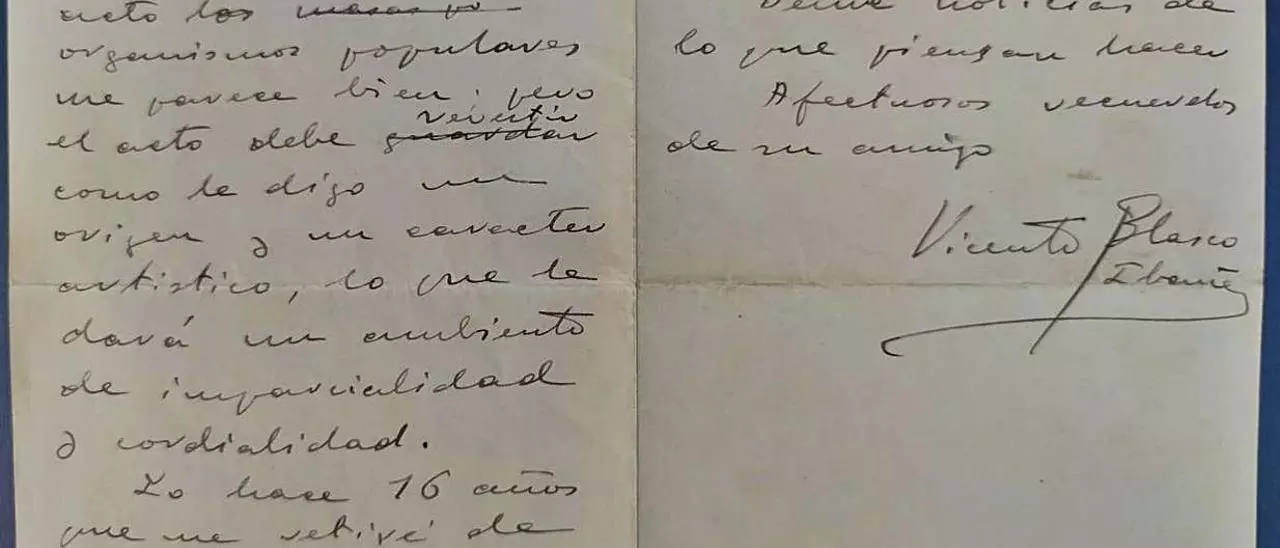 acto los masas po
organismos populares
me parece bien; pero
revestir
el acto debe guardar
como le digo un
origen y un caracter
artistico, lo que le
dará un ambiente
de imparcialidad
y cordialidad.
Yo hace 16 años
que me retiré de
noticias de
lo que piensan hacer
Afectuosos recuerdos
de su amigo
Vicente Blasco
Ibañez